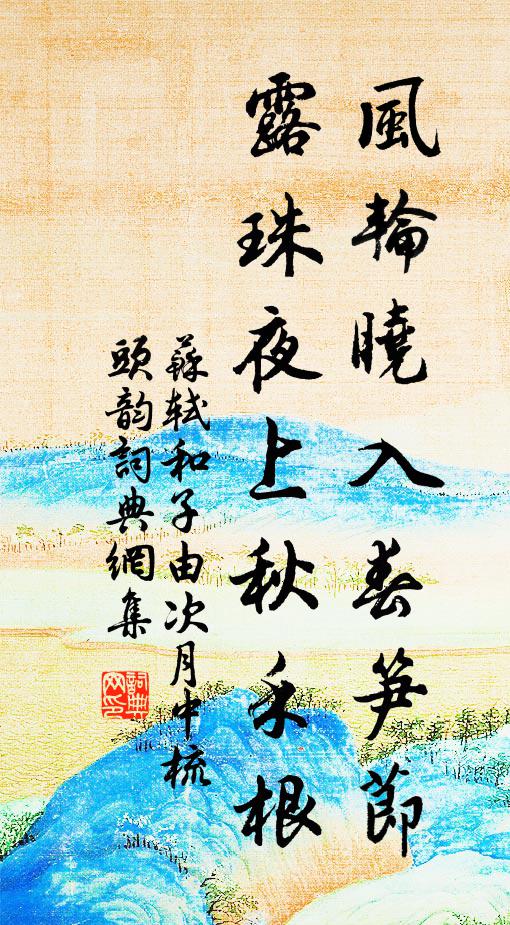 風輪曉入春笋節
露珠夜上秋禾根
蘇軾和子由次月中梳
頭韵詞典網集
詞典
网印